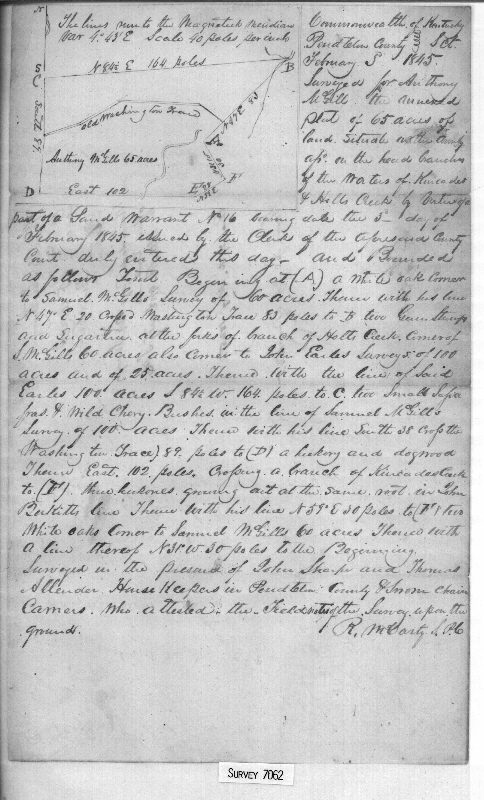 N
The lines run to the Magnetick Meridian
Var 4° 45' E Scale 40 poles per inch
S
C
N 84½ E 164 poles
B
South 89
N 47 E 83
old Washington Trace
A
Anthony McGills 65 acres
N 31 W 30
F
D
East 102
E
Commonwealth of Kentucky
Pendleton County Sct.
February 5 1845.
Surveyed for Anthony
McGill the annexed
plat of 65 acres of
land Situate in the County
afs. on the head branches
of the Waters of Kincades
& Holts Creek by Virtue of a
part of a Land Warrant No 16 bearing date the 5 day of
February 1845, issued by the Clerk of the aforesaid County
Court duly entered this day and Bounded
as follows Towit Beginning at (A) a White oak Corner
to Samuel McGills Survey of 60 acres Thence with his line
N 47° E 20 Crossed Washington Trace 83 poles to B two Gum Stumps
and Sugartree at the forks of branch of Holts Creek Corner of
S. McGills 60 acres also Corner to John Earles Surveys of 100
acres and of 25 acres. Thence with the line of Said
Earles 100 acres S 84½ W. 164 poles to C. two Small Sassa
fras & Wild Chery Bushes in the line of Samuel McGills
Survey of 100 acres Thence with his line South 38 Cross the
Washington Trace) 89 poles to (D) a hickory and dogwood
Thence East. 102 poles. Crossing a branch of Kincades Creek
to (E) three hickories growing out at the same root in John
line Thence with his line N 59° E 30 poles to (F) two
White oaks Corner to Samuel McGills 60 acres Thence with
a line thereof N 31° W 30 poles to the Beginning.
Surveyed in the presence of John Sharp and Thomas
Allender House Keepers in Pendleton County & Sworn Chain
Carriers who attended the Field notes of the Survey upon the
ground.
R. McCarty S. P. C
SURVEY 7062